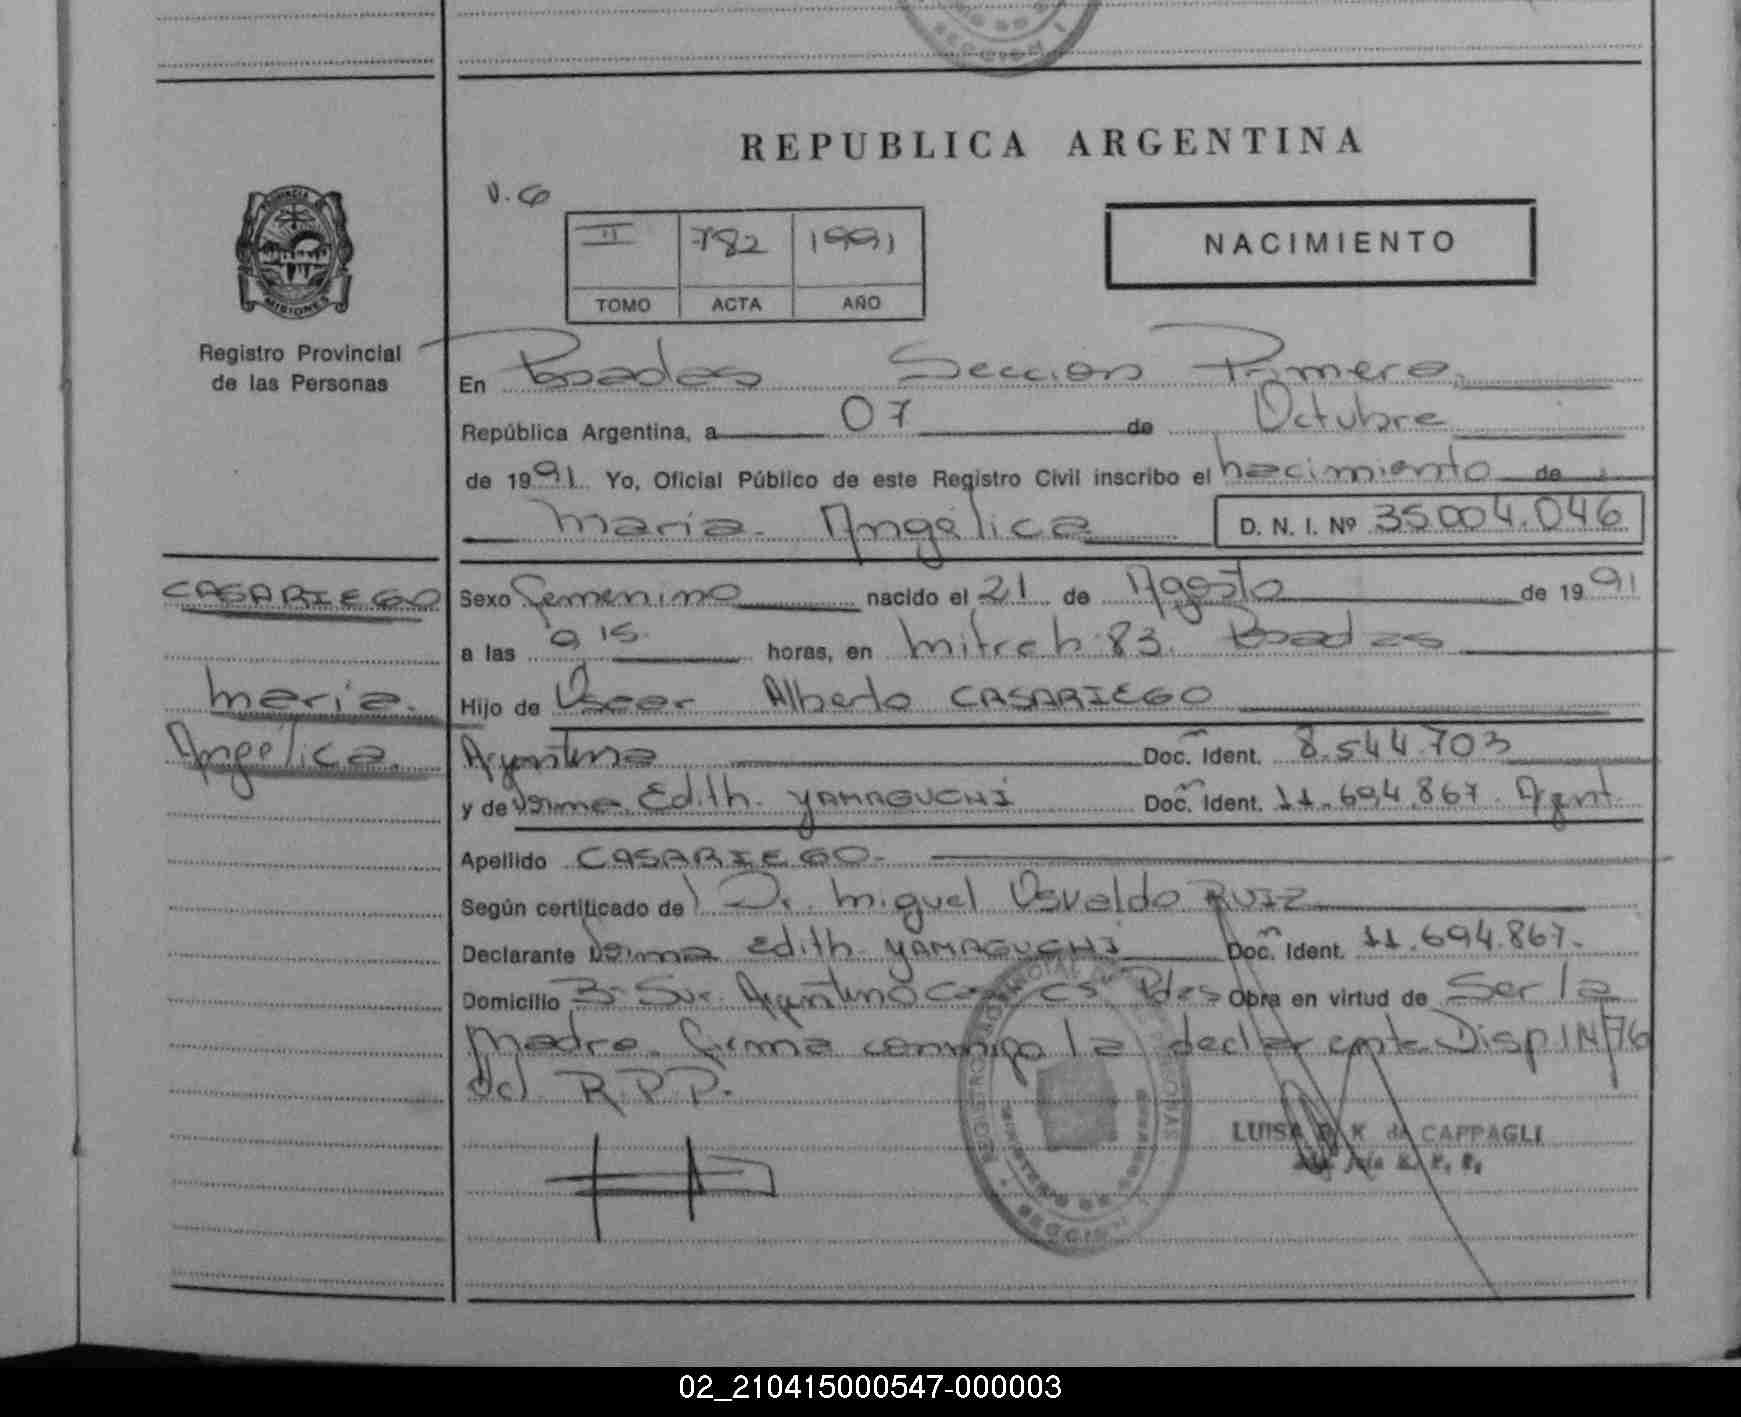 REPUBLICA ARGENTINA
V.G
II 782 1991
TOMO ACTA AÑO
NACIMIENTO
PROVINCIA DE
MISIONES
Registro Provincial
de las Personas
En Posadas Sección Primera
República Argentina, a 07 de Octubre
de 1991 Yo, Oficial Público de este Registro Civil inscribo el nacimiento de
María Angélica D. N. I. Nº 35004.046
CASARIEGO
María
Angélica
Sexo Femenino nacido el 21 de Agosto de 1991
a las 9 15 horas, en Mitre 83. Posadas
Hijo de Oscar Alberto CASARIEGO
Argentino Doc. Ident. 8.544.703
y de Edith YAMAGUCHI Doc. Ident. 11.694.867. Argent.
Apellido CASARIEGO
Según certificado del Dr. Miguel Osvaldo RUIZ
Declarante Edith YAMAGUCHI Doc. Ident. 11.694.867.
Domicilio Argentino Pdas Obra en virtud de Ser la
Madre. Firma conmigo la declarante Disp 1N/76
del R.P.P.
REGISTRO PROVINCIAL DE LAS PERSONAS
MINISTERIO DE GOBIERNO
SECCION 1
LUISA K de CAPPAGLI
02_210415000547-000003